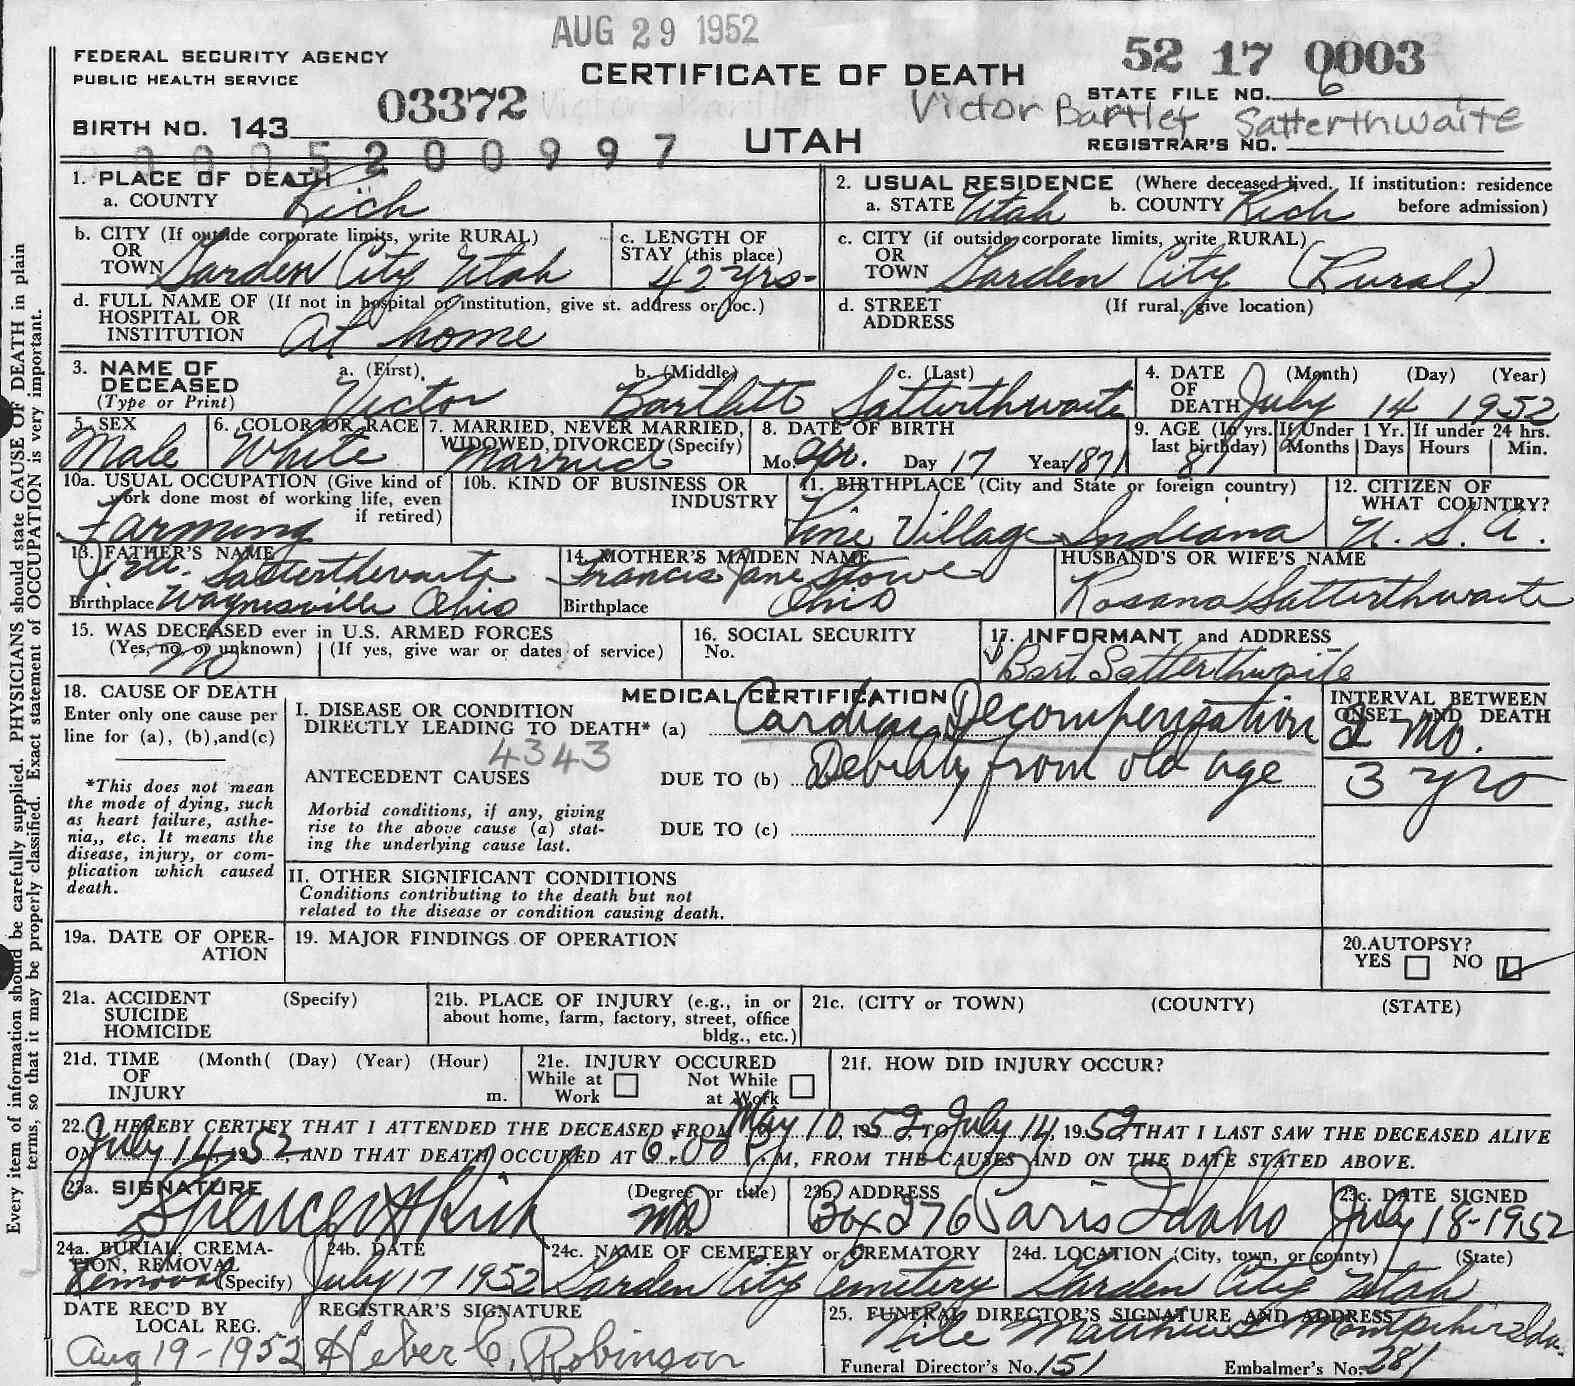 AUG 29 1952
FEDERAL SECURITY AGENCY
PUBLIC HEALTH SERVICE
CERTIFICATE OF DEATH
52 17 0003
STATE FILE NO. 6
03372
Victor Bartlet Satterthwaite
BIRTH NO. 143
UTAH
REGISTRAR'S NO.
0005200997
1. PLACE OF DEATH
a. COUNTY Rich
2. USUAL RESIDENCE (Where deceased lived. If institution: residence before admission)
a. STATE Utah b. COUNTY Rich
b. CITY (If outside corporate limits, write RURAL)
OR TOWN Garden City Utah
c. LENGTH OF STAY (this place)
42 yrs-
c. CITY (if outside corporate limits, write RURAL)
OR TOWN Garden City (Rural)
d. FULL NAME OF (If not in hospital or institution, give st. address or loc.)
HOSPITAL OR INSTITUTION At home
d. STREET ADDRESS (If rural, give location)
3. NAME OF DECEASED (Type or Print)
a. (First) b. (Middle) c. (Last)
Victor Bartlett Satterthwaite
4. DATE OF DEATH (Month) (Day) (Year)
July 14 1952
5. SEX Male
6. COLOR OR RACE White
7. MARRIED, NEVER MARRIED, WIDOWED, DIVORCED (Specify) Married
8. DATE OF BIRTH
Mo. Apr. Day 17 Year 1871
9. AGE (In yrs. last birthday) 81
If Under 1 Yr. Months Days
If under 24 hrs. Hours Min.
10a. USUAL OCCUPATION (Give kind of work done most of working life, even if retired)
Farming
10b. KIND OF BUSINESS OR INDUSTRY
11. BIRTHPLACE (City and State or foreign country)
Pine Village Indiana
12. CITIZEN OF WHAT COUNTRY?
U.S.A.
13. FATHER'S NAME
Satterthwaite
Birthplace Waynesville Ohio
14. MOTHER'S MAIDEN NAME
Francis Jane Stowe
Birthplace Ohio
HUSBAND'S OR WIFE'S NAME
Rosana Satterthwaite
15. WAS DECEASED ever in U.S. ARMED FORCES
(Yes, no, or unknown) (If yes, give war or dates of service)
no
16. SOCIAL SECURITY No.
17. INFORMANT and ADDRESS
Bart Satterthwaite
18. CAUSE OF DEATH
Enter only one cause per line for (a), (b), and (c)
*This does not mean the mode of dying, such as heart failure, asthenia,, etc. It means the disease, injury, or complication which caused death.
MEDICAL CERTIFICATION
I. DISEASE OR CONDITION DIRECTLY LEADING TO DEATH* (a) Cardiac Decompensation
4343
ANTECEDENT CAUSES DUE TO (b) Debility from old age
Morbid conditions, if any, giving rise to the above cause (a) stating the underlying cause last.
DUE TO (c)
INTERVAL BETWEEN ONSET AND DEATH
2 Mo.
3 yrs
II. OTHER SIGNIFICANT CONDITIONS
Conditions contributing to the death but not related to the disease or condition causing death.
19a. DATE OF OPERATION
19. MAJOR FINDINGS OF OPERATION
20. AUTOPSY?
YES NO
21a. ACCIDENT SUICIDE HOMICIDE (Specify)
21b. PLACE OF INJURY (e.g., in or about home, farm, factory, street, office bldg., etc.)
21c. (CITY or TOWN) (COUNTY) (STATE)
21d. TIME OF INJURY (Month( (Day) (Year) (Hour) m.
21e. INJURY OCCURED
While at Work Not While at Work
21f. HOW DID INJURY OCCUR?
22. I HEREBY CERTIFY THAT I ATTENDED THE DECEASED FROM May 10, 1952, TO July 14, 1952, THAT I LAST SAW THE DECEASED ALIVE
ON July 14, 1952, AND THAT DEATH OCCURED AT 6:00 P.M, FROM THE CAUSES AND ON THE DATE STATED ABOVE.
23a. SIGNATURE (Degree or title)
Spencer H Rich MD
23b. ADDRESS
Box 276 Paris Idaho
23c. DATE SIGNED
July 18-1952
24a. BURIAL, CREMATION, REMOVAL (Specify)
Removal
24b. DATE
July 17 1952
24c. NAME OF CEMETERY or CREMATORY
Garden City Cemetery
24d. LOCATION (City, town, or county) (State)
Garden City Utah
DATE REC'D BY LOCAL REG.
Aug 19-1952
REGISTRAR'S SIGNATURE
Heber C. Robinson
25. FUNERAL DIRECTOR'S SIGNATURE AND ADDRESS
Matthews Montpelier Ida.
Funeral Director's No. 151 Embalmer's No. 281
Every item of information should be carefully supplied. PHYSICIANS should state CAUSE OF DEATH in plain
terms, so that it may be properly classified. Exact statement of OCCUPATION is very important.